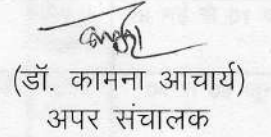 (डॉ. कामना आचार्य)
अपर संचालक